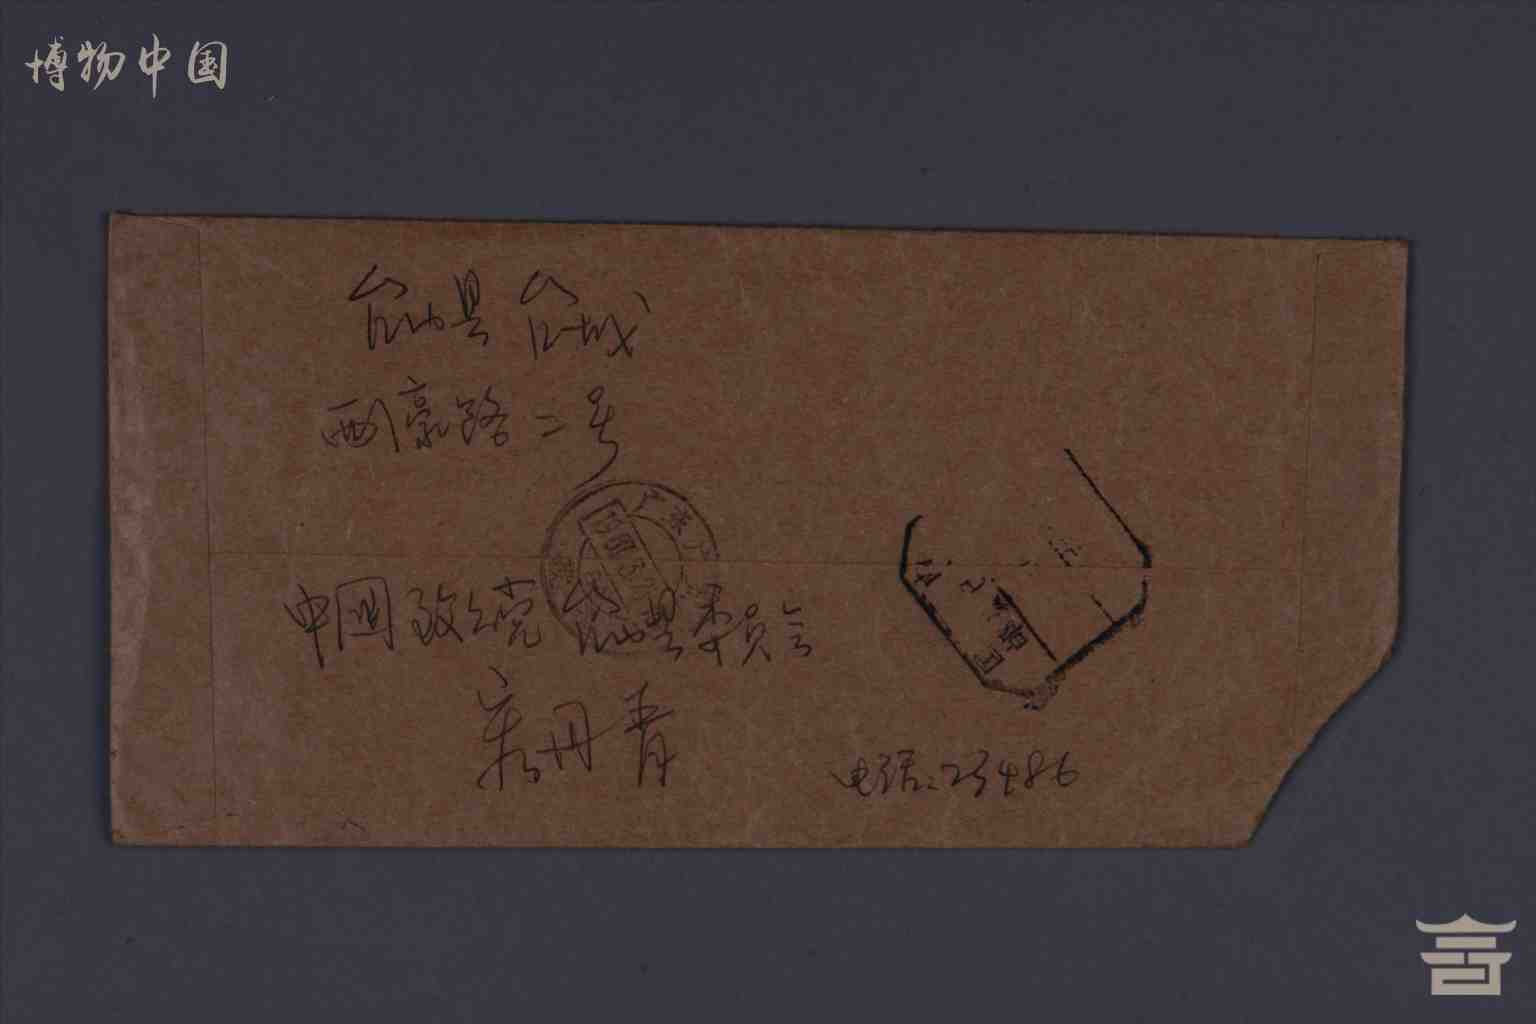 博物中国
台山县 台城
西濠路二号
中国致公党台山县委员会
丹青
电话:23486
广东